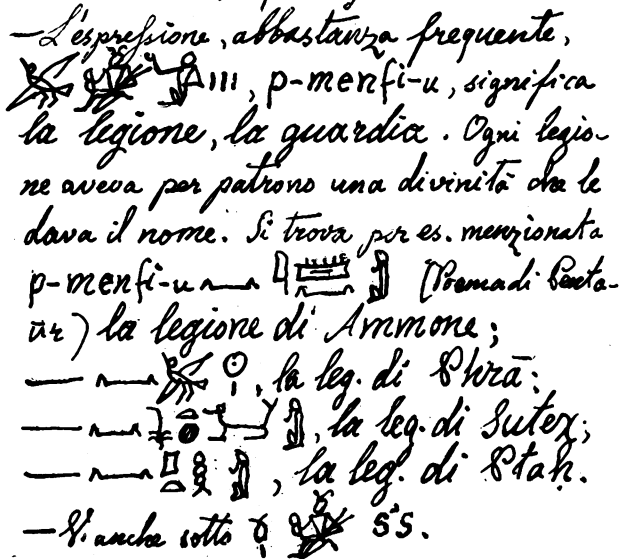 — L'espressione, abbastanza frequente,
𓅮 𓀎 𓏥, p-menfi-u, significa
la legione, la guardia. Ogni legio-
ne aveva per patrono una divinità che le
dava il nome. Si trova per es. menzionata
p-menfi-u 𓈖 𓇋𓏠𓈖𓀭 (Poema di Penta-
ūr) la legione di Ammone;
— 𓈖 𓅮𓇳𓏤, la leg. di Phrā;
— 𓈖 , la leg. di Sutex;
— 𓈖 𓊪𓏏𓎛𓀭, la leg. di Ptaḥ.
— V. anche sotto s's.